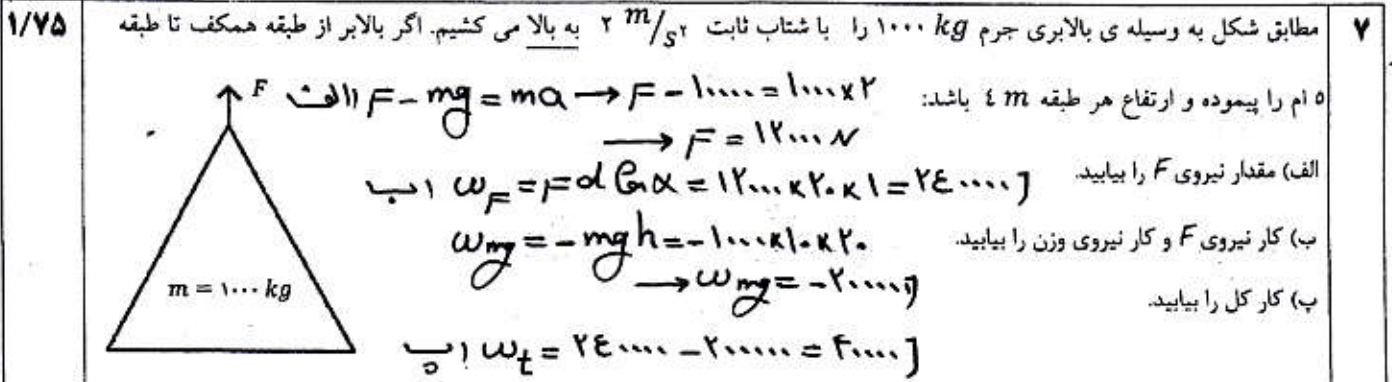 ۱/۷۵
۷
مطابق شکل به وسیله ی بالابری جرم ۱۰۰۰ kg را با شتاب ثابت ۲ m/s۲ به بالا می کشیم. اگر بالابر از طبقه همکف تا طبقه
۵ ام را پیموده و ارتفاع هر طبقه ٤ m باشد:
الف) مقدار نیروی F را بیابید.
ب) کار نیروی F و کار نیروی وزن را بیابید.
پ) کار کل را بیابید.
F
m = ۱۰۰۰ kg
الف) F - mg = ma → F - ۱۰۰۰۰ = ۱۰۰۰×۲
→ F = ۱۲۰۰۰ N
ب) W_F = Fd Cosα = ۱۲۰۰۰×۲۰×۱ = ۲٤۰۰۰۰ J
W_mg = -mgh = -۱۰۰۰×۱۰×۲۰
→ W_mg = -۲۰۰۰۰۰ J
پ) W_t = ۲٤۰۰۰۰ - ۲۰۰۰۰۰ = ۴۰۰۰۰ J